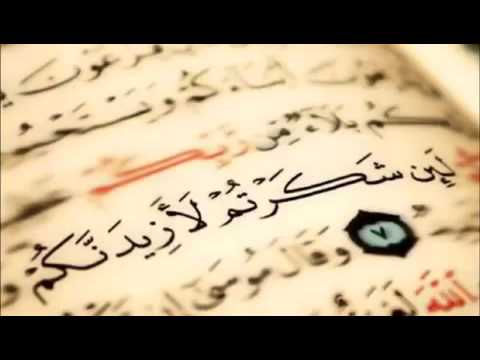 فِرْعَوْنَ
أَبْنَاءَكُمْ وَيَسْتَحْيُ
كُم بَلَاءٌ مِّن رَّبِّكُمْ
لَئِن شَكَرْتُمْ لَأَزِيدَنَّكُمْ
٧ وَقَالَ مُوسَىٰ إِن
اللَّهَ لَغَنِ